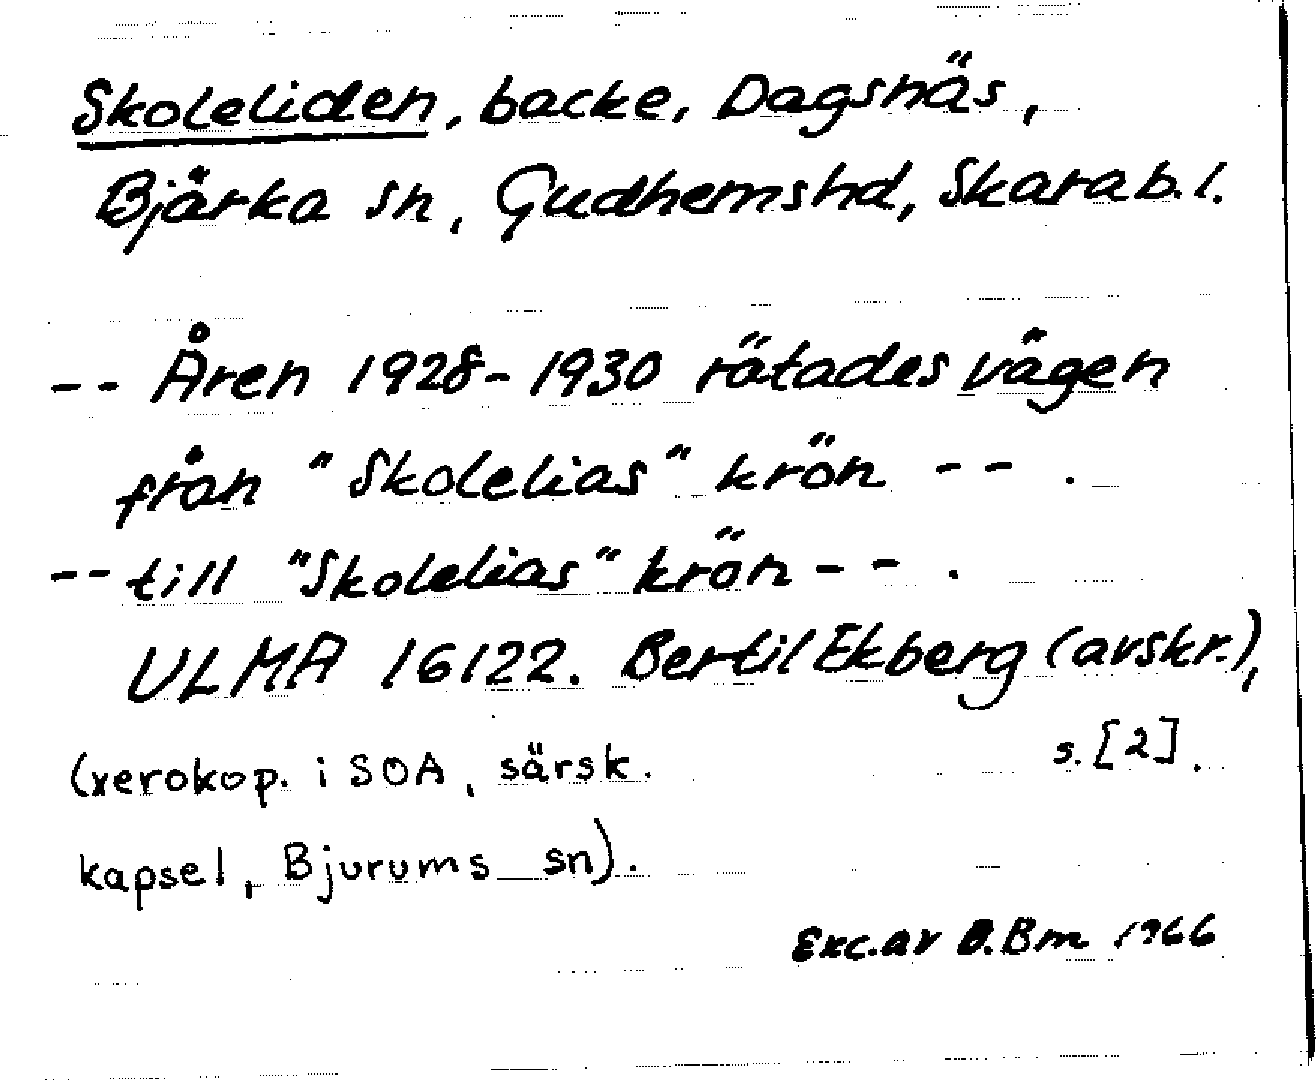 Skoleliden, backe, Dagsnäs,
Bjärka sn, Gudhemshd, Skarab.l.
-- Åren 1928-1930 rätades vägen
från "Skolelias" krön -- .
-- till "Skolelias" krön -- .
ULMA 16122. Bertil Ekberg (avskr.),
s. [2].
(xerokop. i SOA, särsk.
kapsel, Bjurums sn).
Exc. av B.Bm 1966